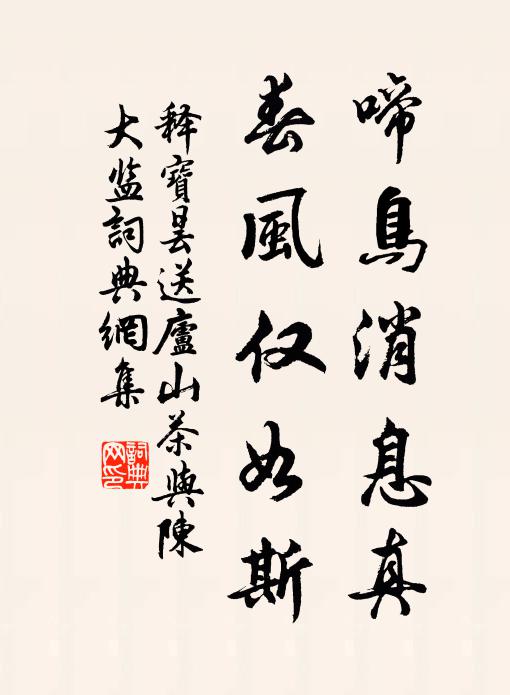 啼鳥消息真
春風仅如斯
释寶曇送廬山茶與陳
大监詞典網集
詞典网印